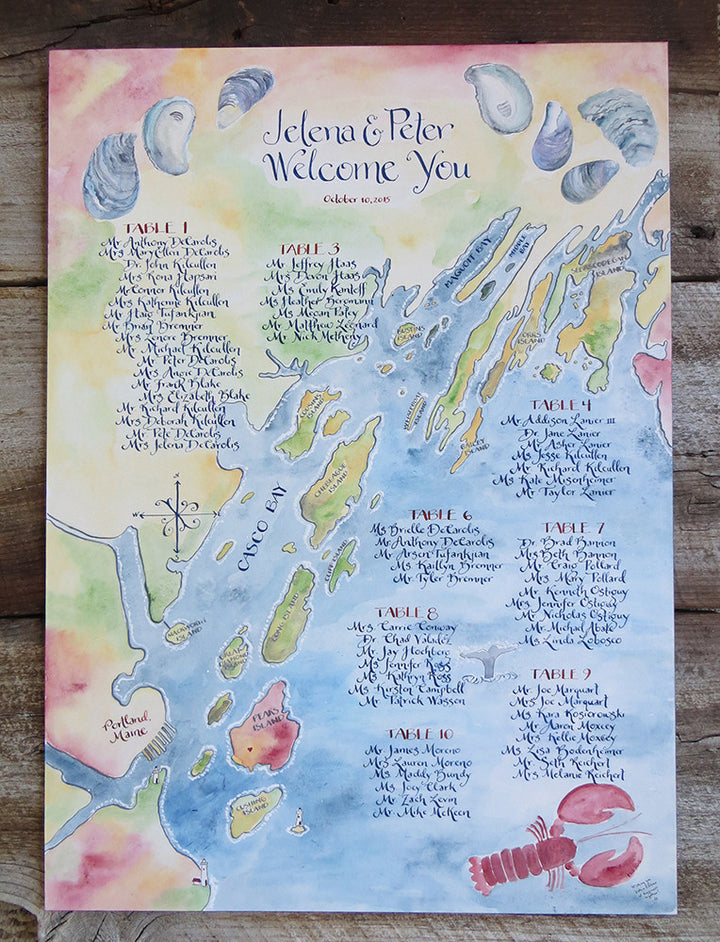 Jelena & Peter
Welcome You
October 10, 2015
TABLE 1
Mr Anthony DeCarolis
Mrs Mary Ellen DeCarolis
Dr. John Kilcullen
Mrs Rona Harsari
Mr Connor Kilcullen
Mrs Katherine Kilcullen
Mr Haig Tufankjian
Mr Brian Brenner
Mrs Lenore Brenner
Mr Michael Kilcullen
Mr Peter DeCarolis
Mrs Angie DeCarolis
Mr Frank Blake
Mrs Elizabeth Blake
Mr Richard Kilcullen
Mrs Deborah Kilcullen
Mr Pete DeCarolis
Mrs Jelena DeCarolis
TABLE 3
Mr Jeffrey Haas
Mrs Devon Haas
Ms Emily Kantoff
Ms Heather Bergmann
Ms Megan Patey
Mr Matthew Leonard
Mr Nick Metheny
MAQUOIT BAY
MIDDLE BAY
SEBASCODEGAN
ISLAND
BUSTINS
ISLAND
ORRS
ISLAND
ISLAND
BAILEY
ISLAND
COUSINS
ISLAND
CHEBEAGUE
ISLAND
CASCO BAY
CLIFF ISLAND
LONG ISLAND
MACKWORTH
ISLAND
GREAT
DIAMOND
ISLAND
PEAKS
ISLAND
CUSHING
ISLAND
Portland,
Maine
N
W
E
S
TABLE 4
Mr Addison Lanier III
Dr Jane Lanier
Mr Asher Lanier
Ms Jesse Kilcullen
Mr Richard Kilcullen
Ms Kate Misenheimer
Mr Taylor Lanier
TABLE 6
Ms Brielle DeCarolis
Mr Anthony DeCarolis
Mr Arsen Tufankjian
Ms Kaitlyn Brenner
Mr Tyler Brenner
TABLE 7
Dr Brad Bannon
Mrs Beth Bannon
Mr Craig Pollard
Mrs Mary Pollard
Mr Kenneth Ostiguy
Mrs Jennifer Ostiguy
Mr Nicholas Ostiguy
Mr Michael Abate
Ms Linda Lobosco
TABLE 8
Mrs. Carrie Conway
Dr Chad Valadez
Mr Jay Hochberg
Ms Jennifer Ross
Ms Kathryn Ross
Ms Kirston Campbell
Mr Patrick Wassen
TABLE 9
Mr Joe Marquart
Mrs Joe Marquart
Ms Kara Kosierowski
Mr Aaron Moxcey
Mrs Kellie Moxcey
Ms Lisa Bodenheimer
Mr Seth Reichert
Mrs Melanie Reichert
TABLE 10
Mr James Moreno
Mrs Lauren Moreno
Ms Maddy Bundy
Ms Joey Clark
Mr Zach Levin
Mr. Mike McKeen